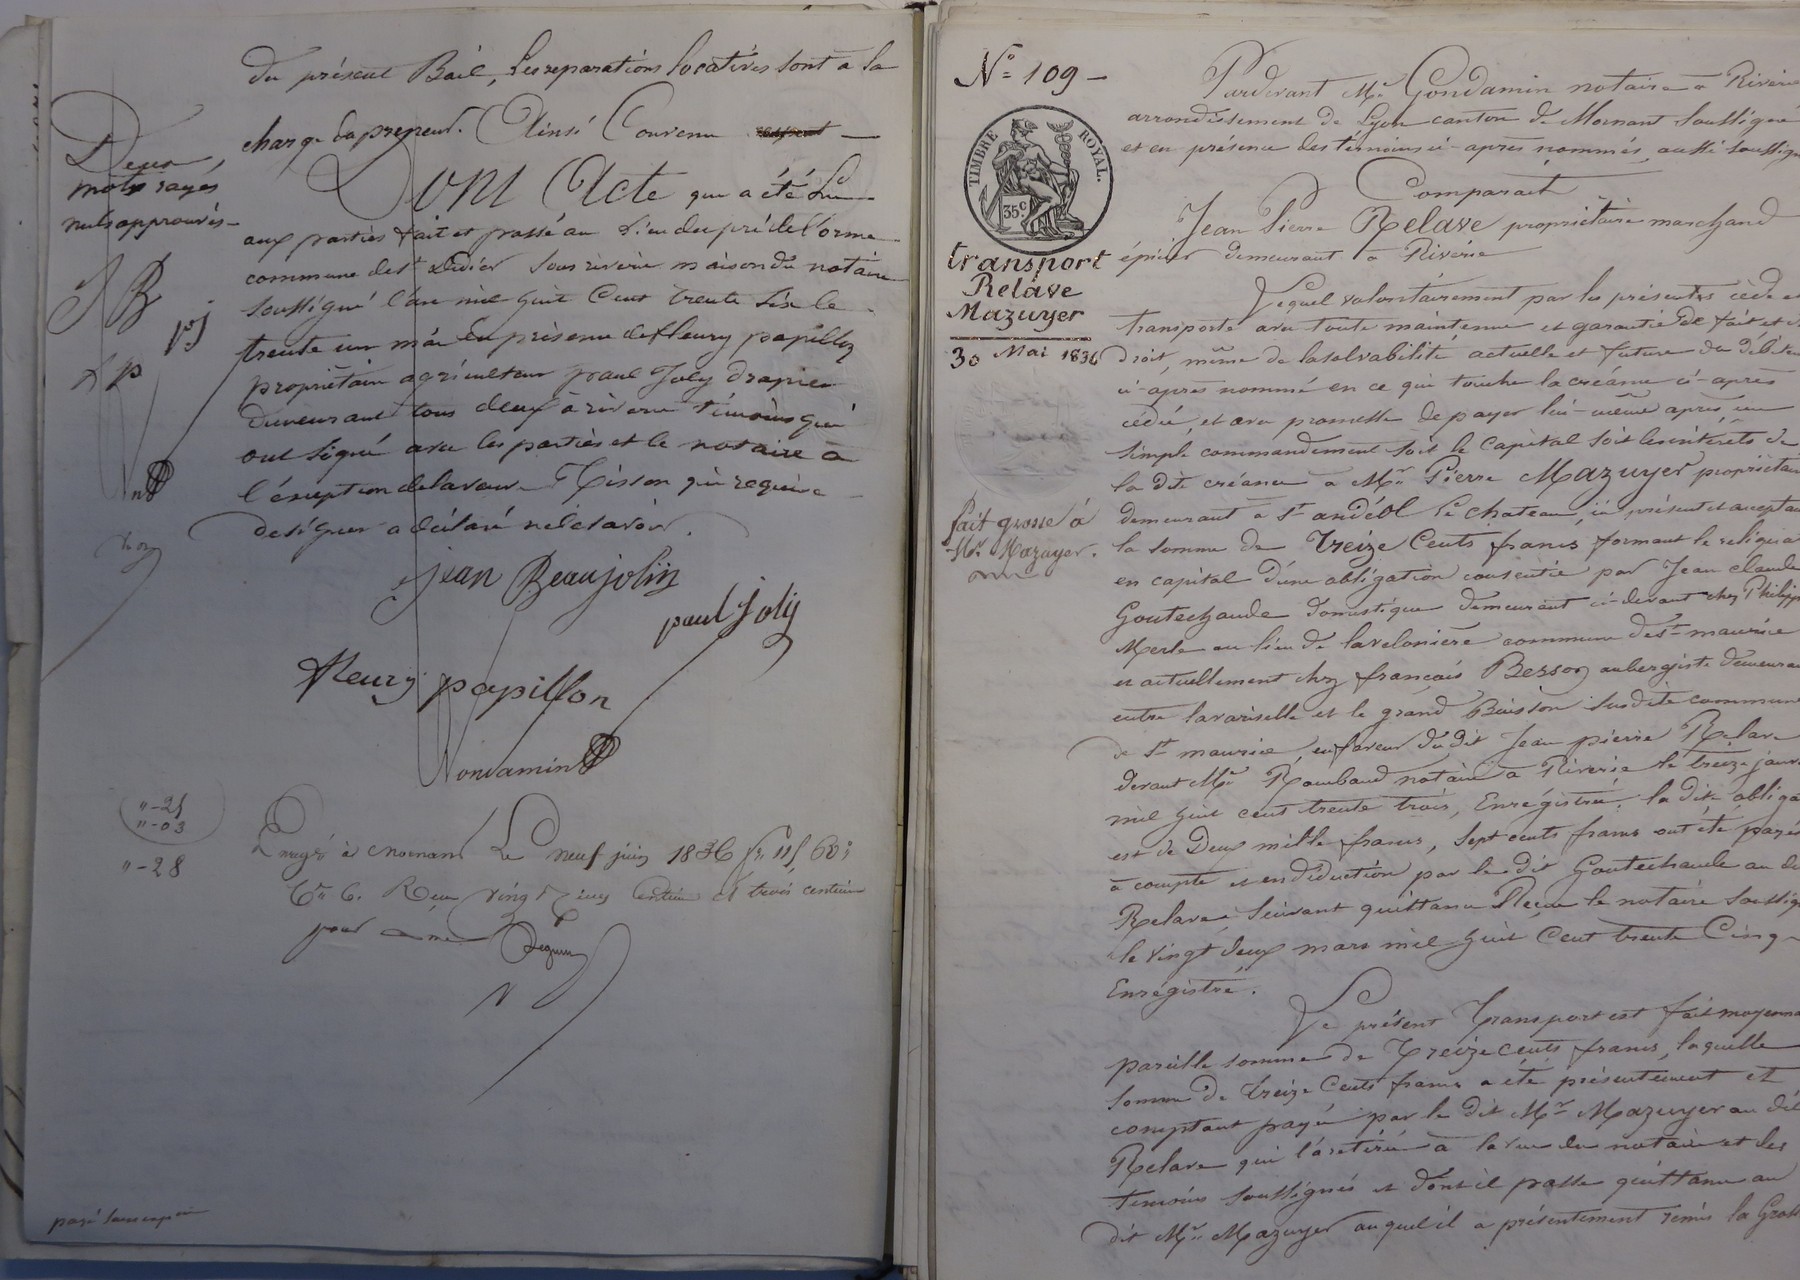 du présent Bail, les reparations locatives sont a la
charge du preneur. Ainsi Convenu
Dont Acte qui a été Lu
aux parties fait et passé au Lieu du pré de l'orme
commune de st Didier sous riverie maison du notaire
soussigné l'an mil huit Cent trente Six le
trente un mai En présence de fleury papillon
propriétaire agriculteur paul Joly drapier
demeurant tous deux à riverie témoins qui
ont signé avec les parties et le notaire à
l'éxception de la veuve Thisson qui requise
de signer a déclaré ne le savoir.
Deux
mots rayés
nuls approuvés
J B
pj
f p
jean Beaujolin
paul Joly
fleury papillon
Gondamin
"-25
"-03
"-28
Enregé à Mornant Le neuf juin 1836 fo 115 Co
Reçu vingt cinq Centimes et trois centimes
pour
N° 109
TIMBRE ROYAL.
35c
transport
Relave
Mazuyer
30 Mai 1836
fait grosse à
Mr. Mazuyer.
Pardevant Me Gondamin notaire a Riverie
arrondissement de Lyon canton de Mornant soussigné
et en présence des témoins ci-apres nommés, aussi soussignés
Comparait
Jean Pierre Relave propriétaire marchand
épicier demeurant a Riverie
Lequel volontairement par les présentes cède et
transporte avec toute maintenue et garantie de fait et de
droit, même de la solvabilité actuelle et future du débiteur
ci-apres nommé en ce qui touche la créance ci-apres
cédée, et avec promesse de payer lui-même après un
simple commandement soit le Capital soit les intérêts de
la dite créance a Mr Pierre Mazuyer propriétaire
demeurant à st andéol le chateau, ici présent et acceptant
la somme de treize Cents francs formant le reliquat
en capital d'une obligation consentie par Jean claude
Goutechaude domestique demeurant ci-devant chez Philippe
Merle au lieu de lavelonière commune de st maurice
et actuellement chez françois Besson aubergiste demeurant
entre lavariselle et le grand Buisson susdite commune
de st maurice, en faveur du dit Jean pierre Relave
devant Me Rambaud notaire à Riverie le treize janvier
mil huit cent trente trois, Enrégistrée, la dite obligation
est de Deux mille francs, sept cents francs ont été payés
à compte et en déduction par le dit Goutechaude au dit
Relave suivant quittance Reçue le notaire soussigné
le vingt deux mars mil huit Cent trente Cinq
Enrégistré.
Le présent Transport est fait moyennant
pareille somme de Treize cents francs, laquelle
somme de treize Cents francs a été présentement et
comptant payée par le dit Mr Mazuyer au dit
Relave qui l'a retirée à la vue du notaire et des
témoins soussignés et dont il passe quittance au
dit Mr Mazuyer auquel il a présentement remis la Grosse